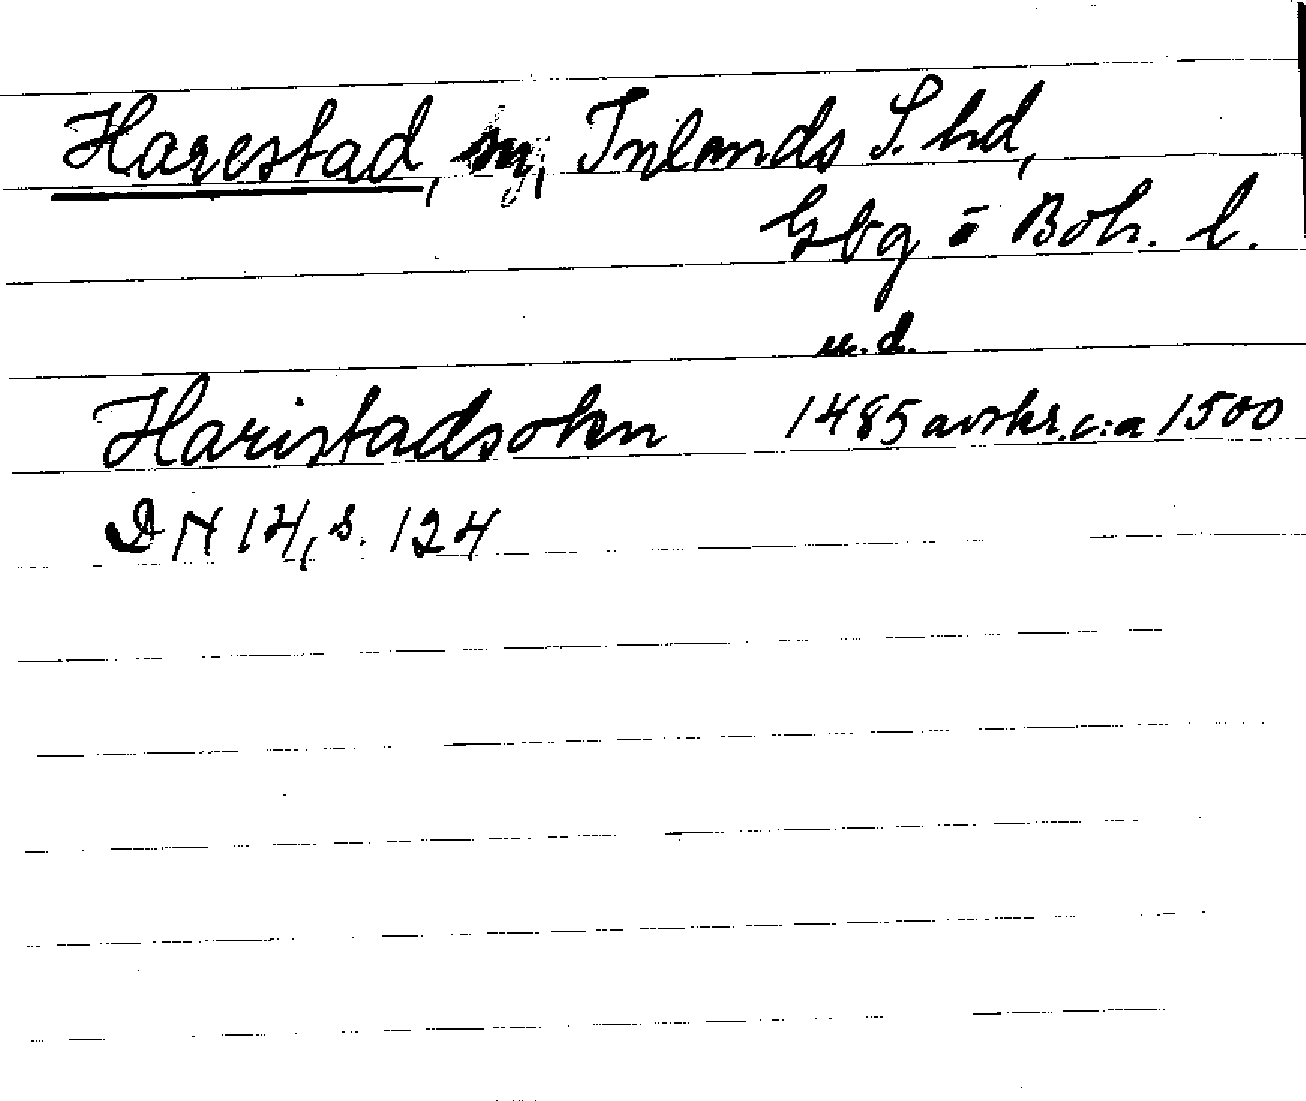 Harestad, sn, Inlands S. hd,
Gbg o Boh. l.
u.d.
Haristadsokn 1485 avskr. c:a 1500
DN 14, s. 124